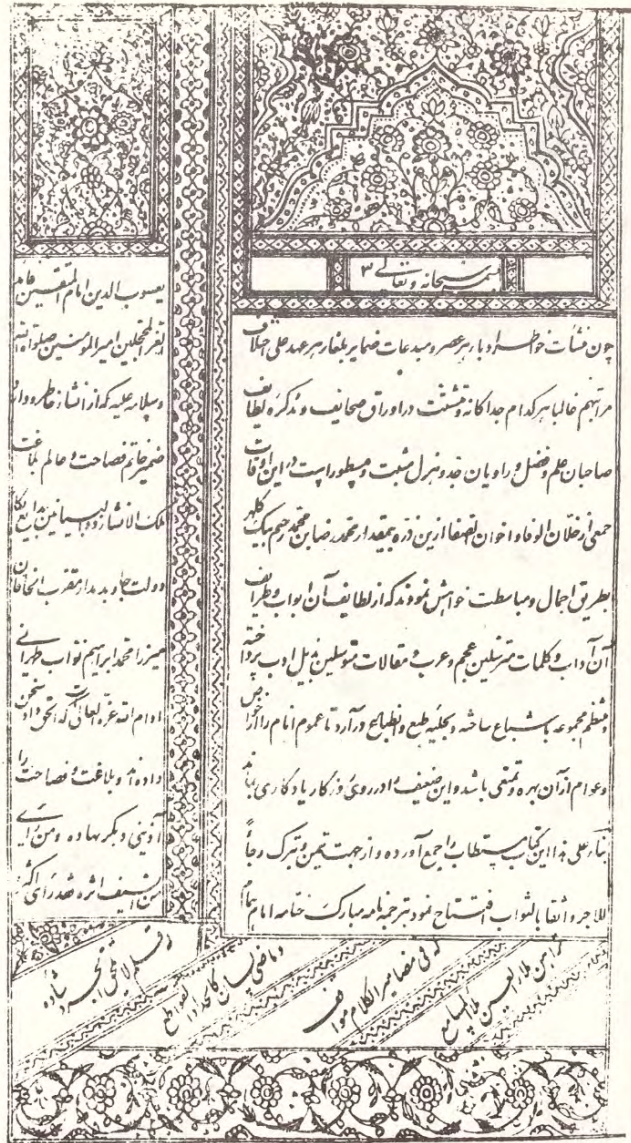 بسمه سبحانه و تعالی ۳
چون منشآت خواطر ادباء هر عصر و مبدعات ضمایر بلغاء هر عهد علی اختلاف
مراتبهم غالبا هر کدام جداگانه و متشتت در اوراق صحایف و تذکره لطایف
صاحبان علم و فضل و راویان جد و هزل مثبت و مسطور است در این اوقات
جمعی از خلان الوفا و اخوان الصفا ازین ذره بیمقدار محمد رضا بن محمد رحیم بیک کلهر
بطریق اجمال و مباسطت خواهش نمودند که از لطایف آن ابواب و ظرایف
آن آداب و کلمات مترسلین عجم و عرب و مقالات متوسلین بذیل ادب پرداخته
و منظم مجموعه ساخته و بحلیه طبع و انطباع در آرد تا عموم انام را از خواص
و عوام از آن بهره و تمتعی باشد و این ضعیف را در روی روزکار یادکاری بماند
بناء علی هذا این کتاب مستطاب را جمع آورده و از جهت تیمن و تبرک رجاء
للاجر و اتقا بالثواب افتتاح نمود بترجمه نامه مبارک ختامه امام همام
یعسوب الدین امام المتقین قائد
الغر المحجلین امیرالمؤمنین صلوات الله
و سلامه علیه که از انشاء خاطر و داد
ضمیر خاتم فصاحت و عالم بلاغت
ملک الانشاء و البیانین بدایع نکار
دولت جاوید مدار مقرب الخاقان
میرزا محمد ابراهیم نواب طهرانی
ادام الله عزه العالی که الحق داد سخن
داده اند و بلاغت و فصاحت را
آذینی دیکر نهاده و من رای
من السیف اثره فقد رای اکثره